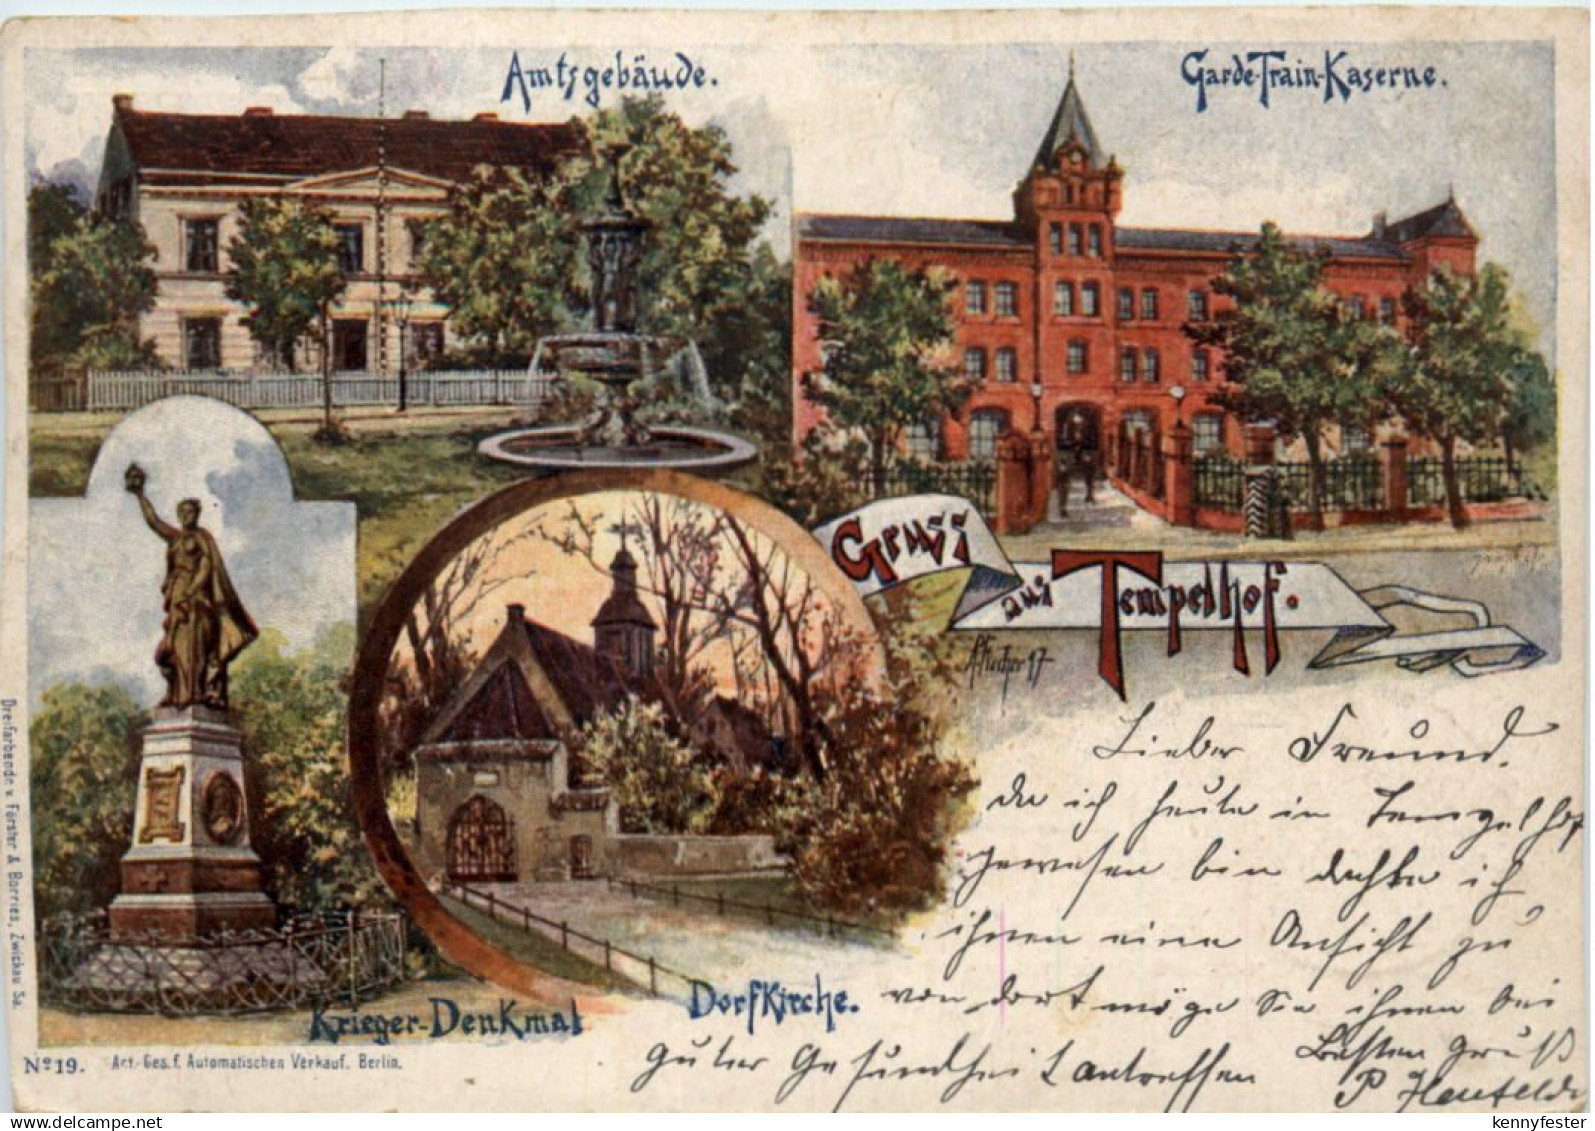 Amtsgebäude.
Garde-Train-Kaserne.
Gruss
aus Tempelhof.
Krieger-Denkmal
Dorfkirche.
Lieber Freund.
da ich heute in Tempelhof
gewesen bin dachte ich
ihnen eine Ansicht zu
von dort möge Sie ihnen bei
guter Gesundheit antreffen
Besten Gruß
P
Dreifarbendr. v. Förster & Borries, Zwickau Sa.
No 19. Act.-Ges. f. Automatischen Verkauf. Berlin.
kennyfester